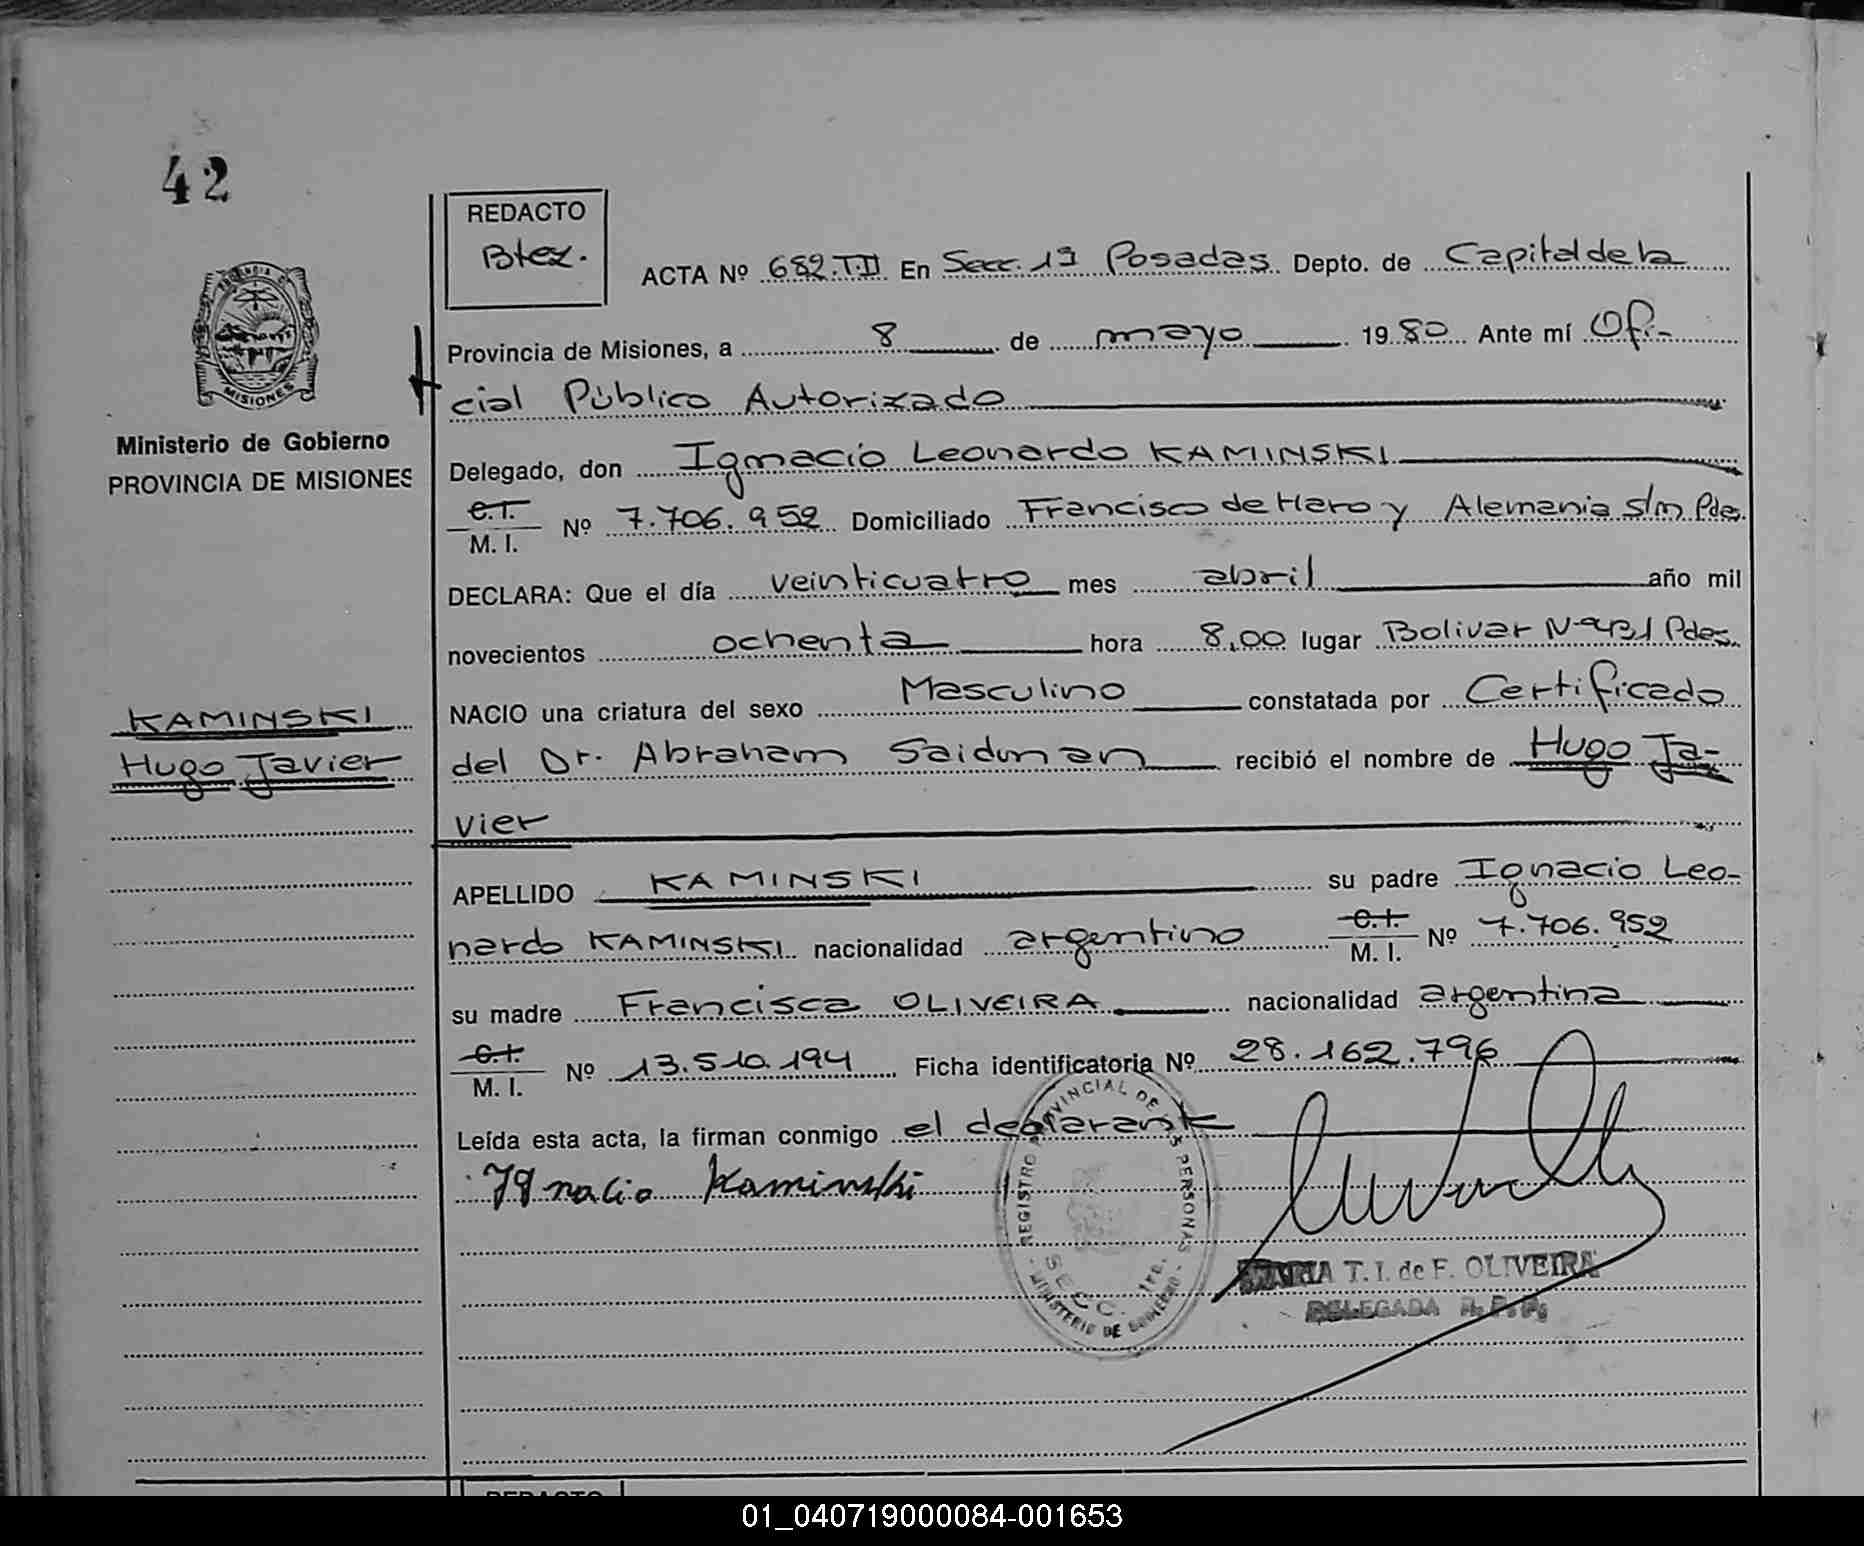 42
REDACTO
Btez.
ACTA Nº 682.T.II En Secc. 1ª Posadas Depto. de Capital de la
Provincia de Misiones, a 8 de mayo 1980 Ante mí Ofi-
cial Público Autorizado
PROVINCIA DE
MISIONES
Ministerio de Gobierno
PROVINCIA DE MISIONES
Delegado, don Ignacio Leonardo KAMINSKI
C.I.
M. I. Nº 7.706.952 Domiciliado Francisco de Haro y Alemania s/n Pdas.
DECLARA: Que el día veinticuatro mes abril año mil
novecientos ochenta hora 8,00 lugar Bolivar Pdas.
NACIO una criatura del sexo Masculino constatada por Certificado
KAMINSKI
Hugo Javier
del Dr. Abraham Saidman recibió el nombre de Hugo Ja-
vier
APELLIDO KAMINSKI su padre Ignacio Leo-
nardo KAMINSKI nacionalidad argentino C.I.
M. I. Nº 7.706.952
su madre Francisca OLIVEIRA nacionalidad argentina
C.I.
M. I. Nº 13.510.194 Ficha identificatoria Nº 28.162.796
Leída esta acta, la firman conmigo el declarante
Ignacio Kaminski
REGISTRO PROVINCIAL DE LAS PERSONAS
SECC. 1ra.
- MINISTERIO DE GOBIERNO -
MARIA T. I. de F. OLIVEIRA
DELEGADA R. P. P.
REDACTO
01_040719000084-001653